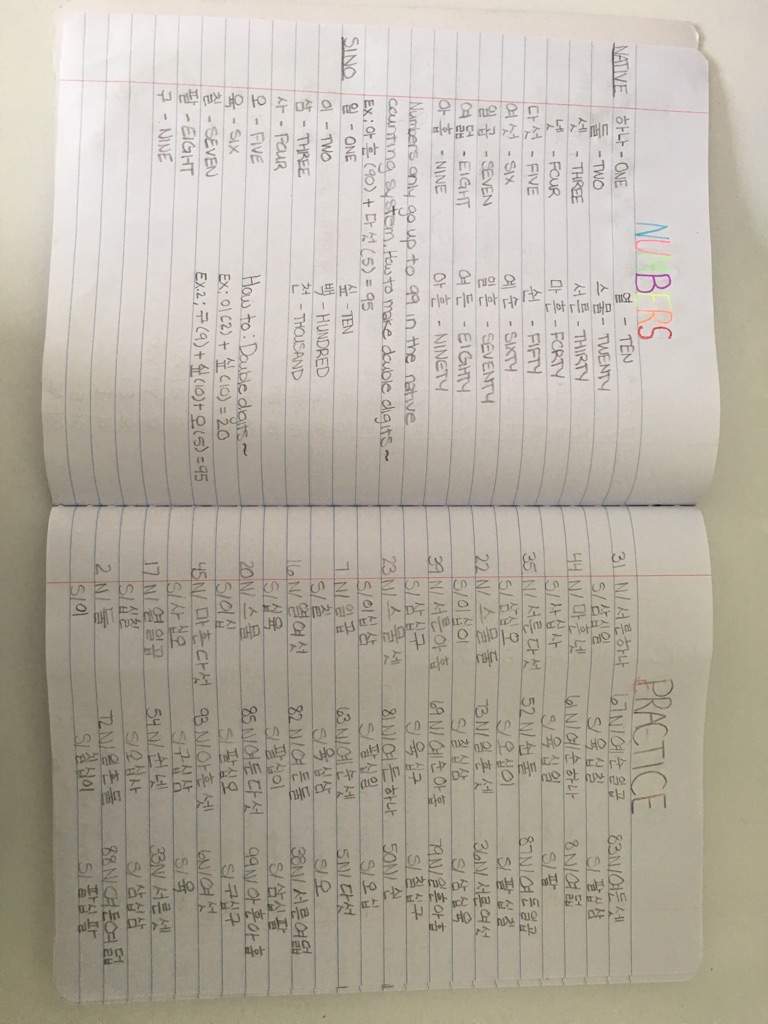 NUMBERS
NATIVE 하나 - ONE 열 - TEN
둘 - TWO 스물 - TWENTY
셋 - THREE 서른 - THIRTY
넷 - FOUR 마흔 - FORTY
다섯 - FIVE 쉰 - FIFTY
여섯 - SIX 예순 - SIXTY
일곱 - SEVEN 일흔 - SEVENTY
여덟 - EIGHT 여든 - EIGHTY
아홉 - NINE 아흔 - NINETY
Numbers only go up to 99 in the native
counting system. How to make double digits~
Ex: 아흔(90) + 다섯(5) = 95
SINO 일 - ONE 십 - TEN
이 - TWO 백 - HUNDRED
삼 - THREE 천 - THOUSAND
사 - FOUR
오 - FIVE How to: Double digits~
육 - SIX Ex: 이(2) + 십(10) = 20
칠 - SEVEN Ex2: 구(9) + 십(10) + 오(5) = 95
팔 - EIGHT
구 - NINE
PRACTICE
31 N/ 서른하나 67 N/ 예순일곱 83 N/ 여든셋
S/ 삼십일 S/ 육십칠 S/ 팔십삼
44 N/ 마흔넷 61 N/ 예순하나 8 N/ 여덟
S/ 사십사 S/ 육십일 S/ 팔
35 N/ 서른다섯 52 N/ 쉰둘 87 N/ 여든일곱
S/ 삼십오 S/ 오십이 S/ 팔십칠
22 N/ 스물둘 73 N/ 일흔셋 36 N/ 서른여섯
S/ 이십이 S/ 칠십삼 S/ 삼십육
39 N/ 서른아홉 69 N/ 예순아홉 79 N/ 일흔아홉
S/ 삼십구 S/ 육십구 S/ 칠십구
23 N/ 스물셋 81 N/ 여든하나 50 N/ 쉰
S/ 이십삼 S/ 팔십일 S/ 오십
7 N/ 일곱 63 N/ 예순셋 5 N/ 다섯
S/ 칠 S/ 육십삼 S/ 오
16 N/ 열여섯 82 N/ 여든둘 38 N/ 서른여덟
S/ 십육 S/ 팔십이 S/ 삼십팔
20 N/ 스물 85 N/ 여든다섯 99 N/ 아흔아홉
S/ 이십 S/ 팔십오 S/ 구십구
45 N/ 마흔다섯 93 N/ 아흔셋 6 N/ 여섯
S/ 사십오 S/ 구십삼 S/ 육
17 N/ 열일곱 54 N/ 쉰넷 33 N/ 서른셋
S/ 십칠 S/ 오십사 S/ 삼십삼
2 N/ 둘 72 N/ 일흔둘 88 N/ 여든여덟
S/ 이 S/ 칠십이 S/ 팔십팔